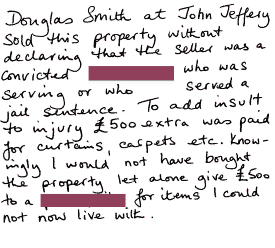 Douglas Smith at John Jeffery
sold this property without
declaring that the seller was a
convicted who was
serving or who served a
jail sentence. To add insult
to injury £500 extra was paid
for curtains, carpets etc. Know-
ingly I would not have bought
the property, let alone give £500
to a for items I could
not now live with.